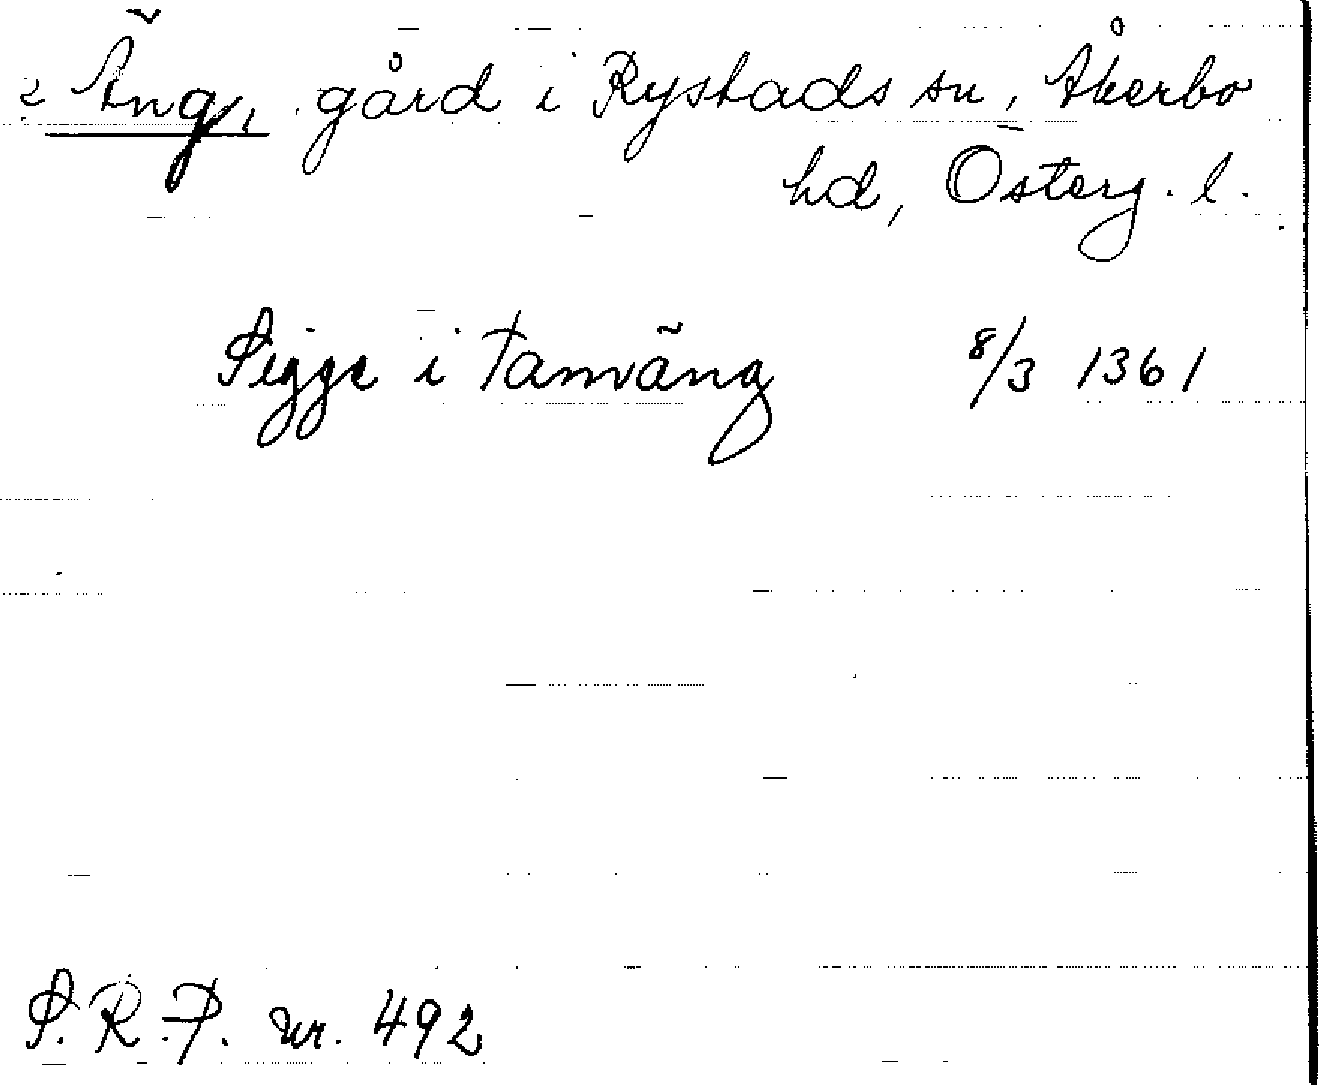 ? Äng, gård i Rystads sn, Åkerbo
hd, Österg. l.
Sigge i Tamäng 8/3 1361
S.R.P. nr. 492